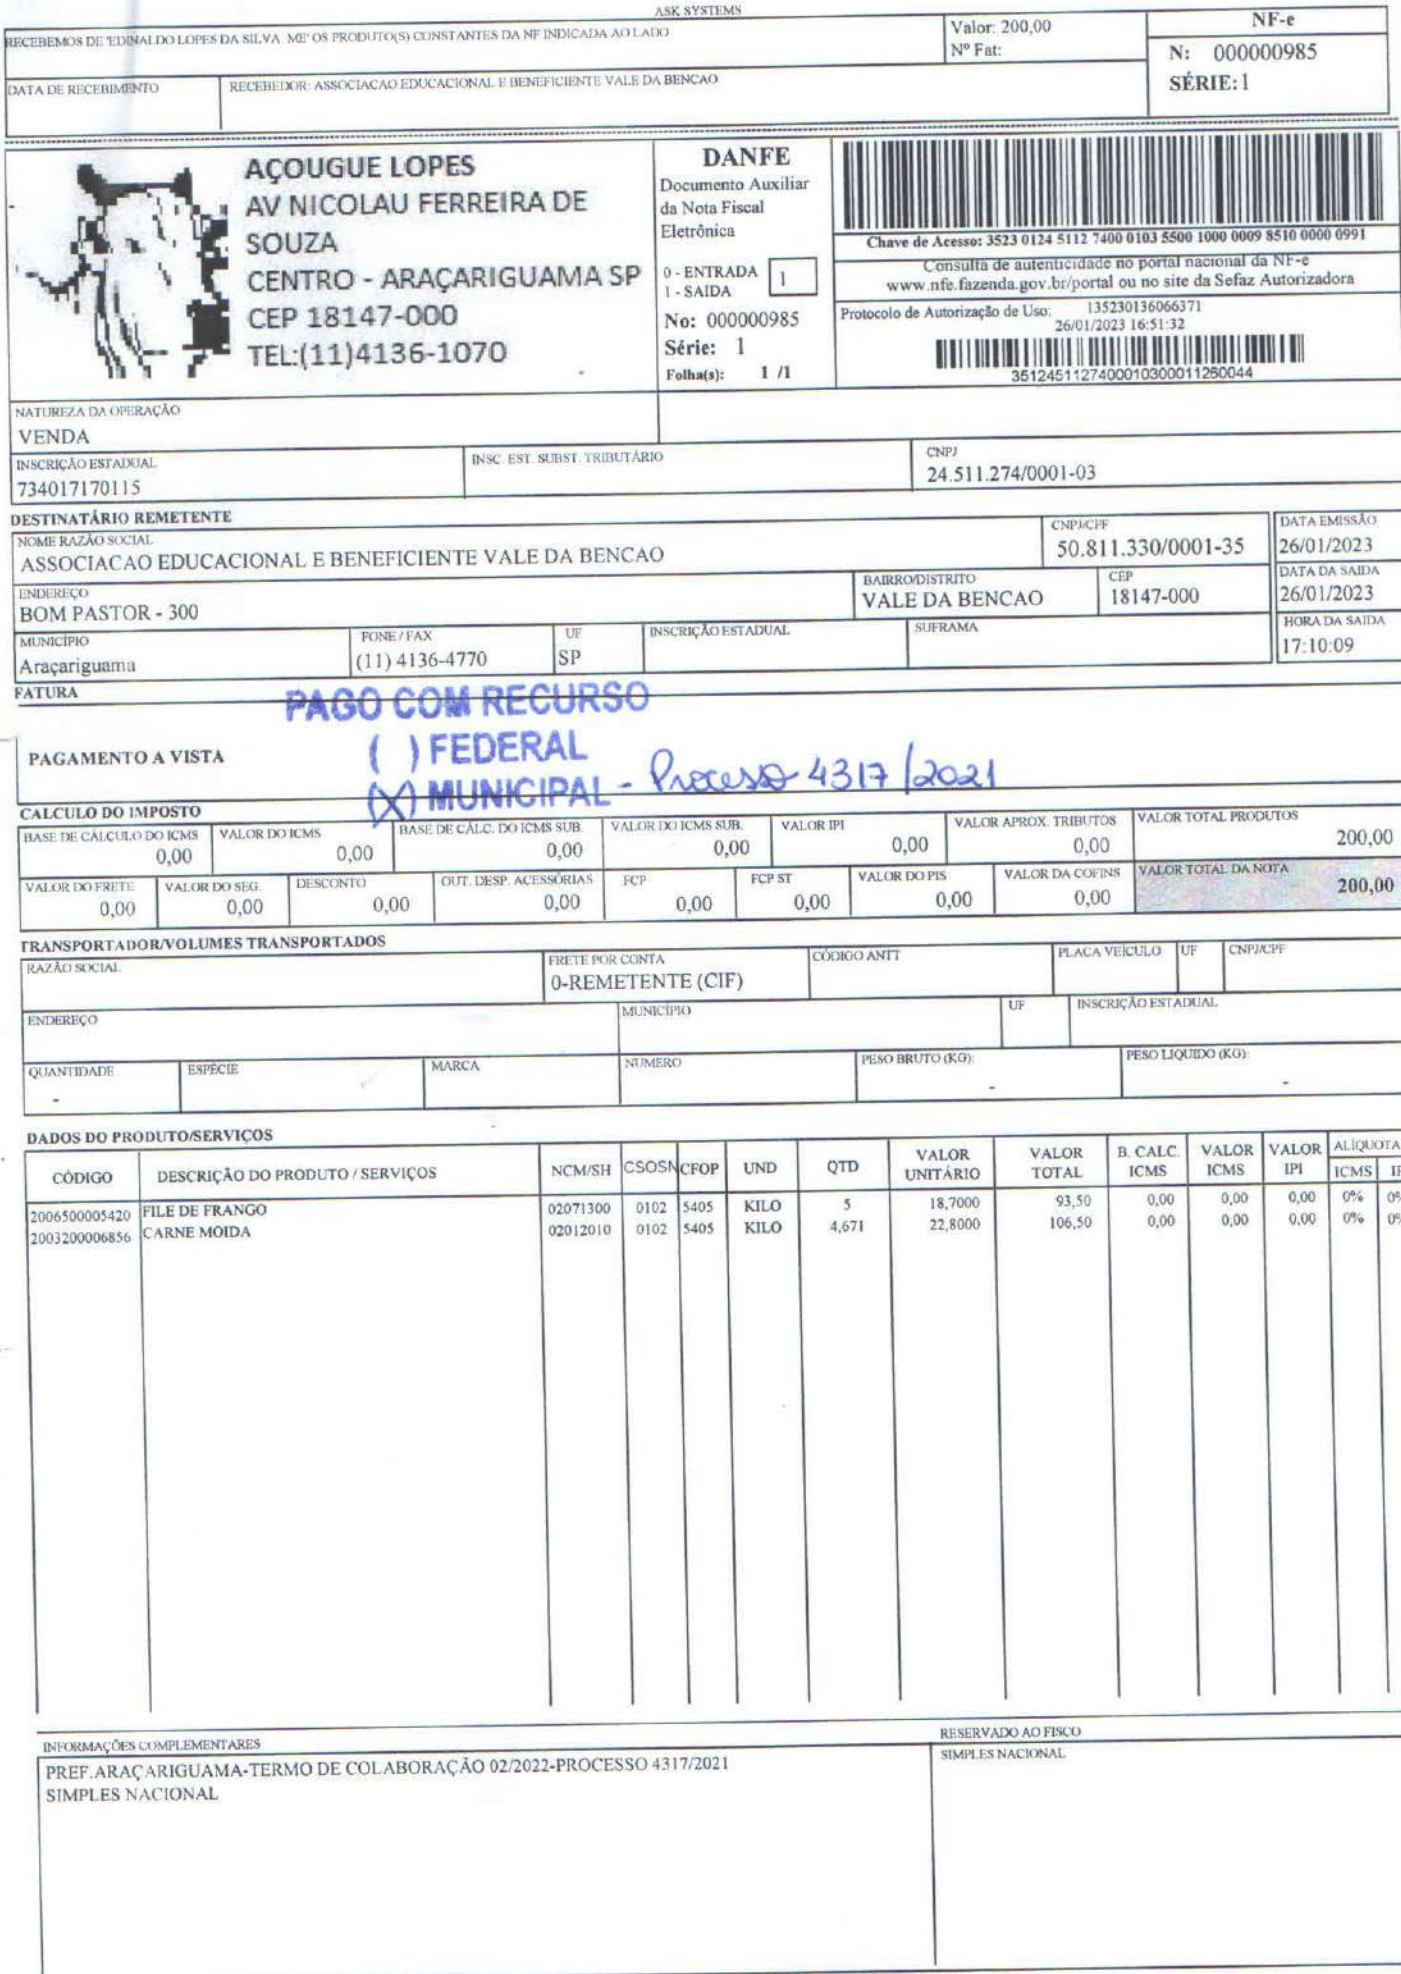 ASK SYSTEMS
RECEBEMOS DE 'EDINALDO LOPES DA SILVA ME' OS PRODUTO(S) CONSTANTES DA NF INDICADA AO LADO
Valor: 200,00
Nº Fat:
NF-e
N: 000000985
SÉRIE: 1
DATA DE RECEBIMENTO
RECEBEDOR: ASSOCIACAO EDUCACIONAL E BENEFICIENTE VALE DA BENCAO
AÇOUGUE LOPES
AV NICOLAU FERREIRA DE
SOUZA
CENTRO - ARAÇARIGUAMA SP
CEP 18147-000
TEL:(11)4136-1070
DANFE
Documento Auxiliar
da Nota Fiscal
Eletrônica
0 - ENTRADA
1 - SAIDA
1
No: 000000985
Série: 1
Folha(s): 1 /1
Chave de Acesso: 3523 0124 5112 7400 0103 5500 1000 0009 8510 0000 0991
Consulta de autenticidade no portal nacional da NF-e
www.nfe.fazenda.gov.br/portal ou no site da Sefaz Autorizadora
Protocolo de Autorização de Uso: 135230136066371
26/01/2023 16:51:32
3512451127400010300011260044
NATUREZA DA OPERAÇÃO
VENDA
INSCRIÇÃO ESTADUAL
734017170115
INSC. EST. SUBST. TRIBUTÁRIO
CNPJ
24.511.274/0001-03
DESTINATÁRIO REMETENTE
NOME RAZÃO SOCIAL
ASSOCIACAO EDUCACIONAL E BENEFICIENTE VALE DA BENCAO
CNPJ/CPF
50.811.330/0001-35
DATA EMISSÃO
26/01/2023
ENDEREÇO
BOM PASTOR - 300
BAIRRO/DISTRITO
VALE DA BENCAO
CEP
18147-000
DATA DA SAIDA
26/01/2023
MUNICÍPIO
Araçariguama
FONE / FAX
(11) 4136-4770
UF
SP
INSCRIÇÃO ESTADUAL
SUFRAMA
HORA DA SAIDA
17:10:09
FATURA
PAGO COM RECURSO
PAGAMENTO A VISTA
( ) FEDERAL
(X) MUNICIPAL - Processo 4317/2021
CALCULO DO IMPOSTO
BASE DE CÁLCULO DO ICMS
0,00
VALOR DO ICMS
0,00
BASE DE CÁLC. DO ICMS SUB.
0,00
VALOR DO ICMS SUB.
0,00
VALOR IPI
0,00
VALOR APROX. TRIBUTOS
0,00
VALOR TOTAL PRODUTOS
200,00
VALOR DO FRETE
0,00
VALOR DO SEG.
0,00
DESCONTO
0,00
OUT. DESP. ACESSÓRIAS
0,00
FCP
0,00
FCP ST
0,00
VALOR DO PIS
0,00
VALOR DA COFINS
0,00
VALOR TOTAL DA NOTA
200,00
TRANSPORTADOR/VOLUMES TRANSPORTADOS
RAZÃO SOCIAL
FRETE POR CONTA
0-REMETENTE (CIF)
CÓDIGO ANTT
PLACA VEÍCULO
UF
CNPJ/CPF
ENDEREÇO
MUNICÍPIO
UF
INSCRIÇÃO ESTADUAL
QUANTIDADE
-
ESPÉCIE
MARCA
NUMERO
PESO BRUTO (KG):
-
PESO LIQUIDO (KG):
-
DADOS DO PRODUTO/SERVIÇOS
CÓDIGO DESCRIÇÃO DO PRODUTO / SERVIÇOS NCM/SH CSOSN CFOP UND QTD VALOR UNITÁRIO VALOR TOTAL B. CALC. ICMS VALOR ICMS VALOR IPI ALÍQUOTA ICMS
2006500005420 FILE DE FRANGO 02071300 0102 5405 KILO 5 18,7000 93,50 0,00 0,00 0,00 0% 0%
2003200006856 CARNE MOIDA 02012010 0102 5405 KILO 4,671 22,8000 106,50 0,00 0,00 0,00 0% 0%
INFORMAÇÕES COMPLEMENTARES
PREF.ARAÇARIGUAMA-TERMO DE COLABORAÇÃO 02/2022-PROCESSO 4317/2021
SIMPLES NACIONAL
RESERVADO AO FISCO
SIMPLES NACIONAL